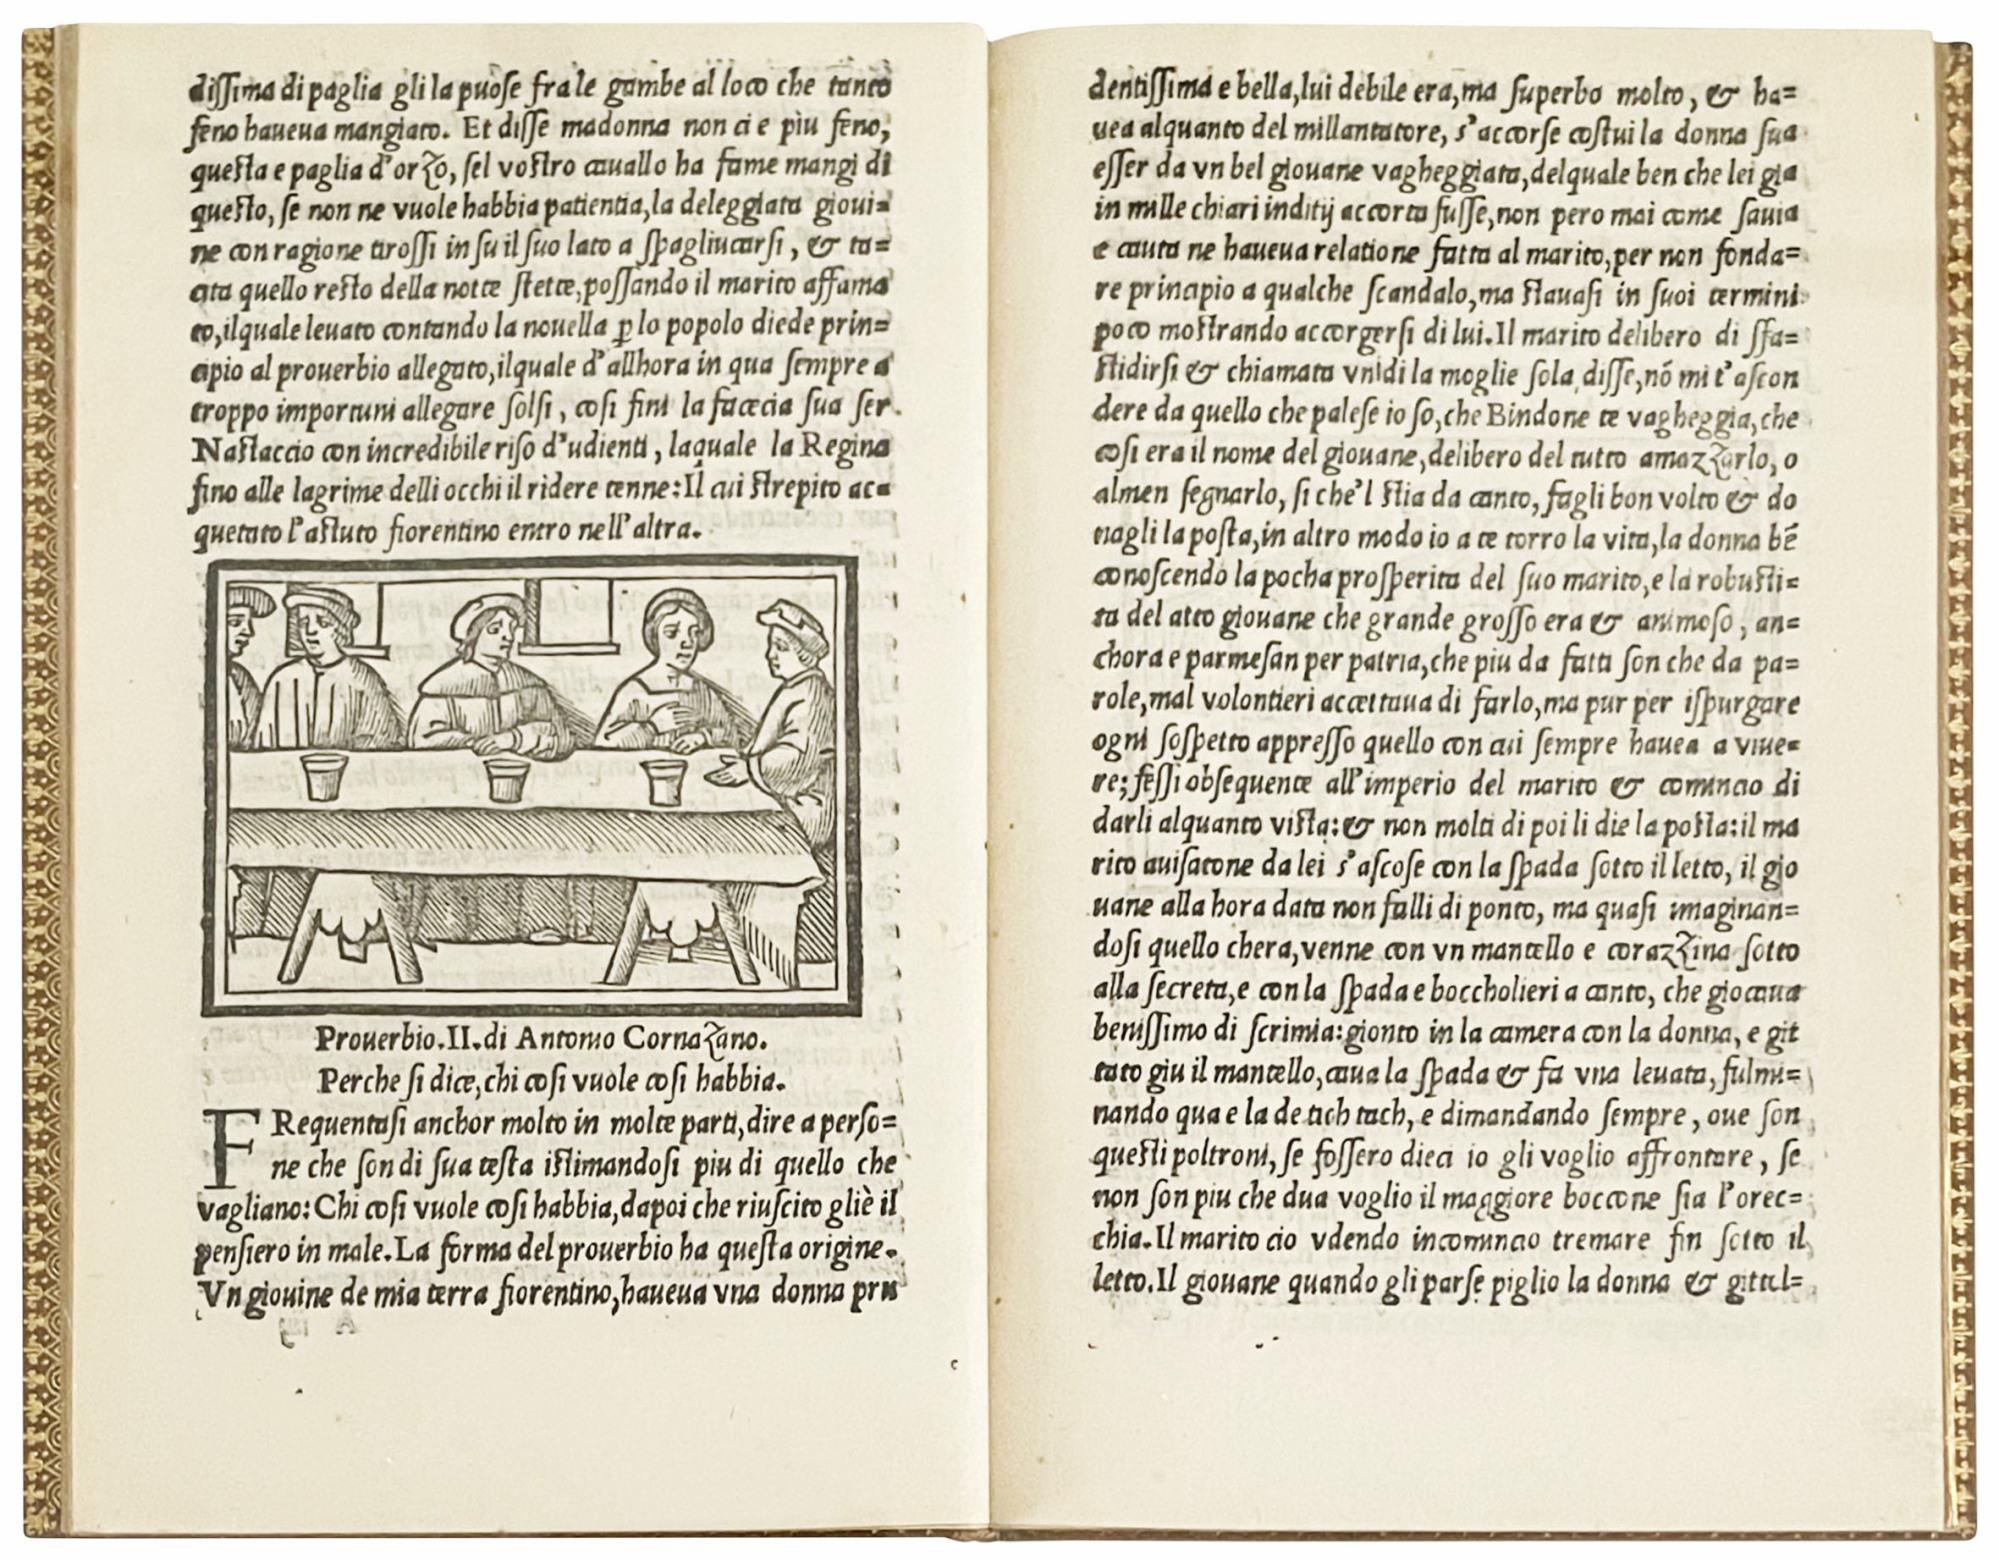 dissima di paglia gli la puose fra le gambe al loco che tanto
feno haueua mangiato. Et disse madonna non ci e più feno,
questa e paglia d'orzo, sel vostro cauallo ha fame mangi di
questo, se non ne vuole habbia patientia, la deleggiata gioui=
ne con ragione tirossi in su il suo lato a spagliucarsi, & ta=
cita quello resto della notte stette, possando il marito affama
to, ilquale leuato contando la nouella ꝑ lo popolo diede prin=
cipio al prouerbio allegato, ilquale d'allhora in qua sempre a
troppo importuni allegare solsi, cosi fini la facecia sua ser
Nastaccio con incredibile riso d'udienti, laquale la Regina
fino alle lagrime delli occhi il ridere tenne: Il cui strepito ac=
quetato l'astuto fiorentino entro nell'altra.
Prouerbio. II. di Antonio Cornazano.
Perche si dice, chi cosi vuole cosi habbia.
FRequentasi anchor molto in molte parti, dire a perso=
ne che son di sua testa istimandosi piu di quello che
vagliano: Chi cosi vuole cosi habbia, dapoi che riuscito gliè il
pensiero in male. La forma del prouerbio ha questa origine.
Vn giouine de mia terra fiorentino, haueua vna donna pru
dentissima e bella, lui debile era, ma superbo molto, & ha=
uea alquanto del millantatore, s'accorse costui la donna sua
esser da vn bel giouane vagheggiata, del quale ben che lei gia
in mille chiari inditij accorta fusse, non pero mai come sauia
e cauta ne haueua relatione fatta al marito, per non fonda=
re principio a qualche scandalo, ma stauasi in suoi termini
poco mostrando accorgersi di lui. Il marito delibero di sfa=
stidirsi & chiamata vn di la moglie sola, disse, nõ mi t'ascon
dere da quello che palese io so, che Bindone te vagheggia, che
cosi era il nome del giouane, delibero del tutto amazzarlo, o
almen segnarlo, si che'l stia da canto, fagli bon volto & do
nagli la posta, in altro modo io a te torro la vita, la donna bẽ
conoscendo la pocha prosperita del suo marito, e la robusti=
ta del atto giouane che grande grosso era & animoso, an=
chora e parmesan per patria, che piu da fatti son che da pa=
role, mal volontieri accettaua di farlo, ma pur per ispurgare
ogni sospetto appresso quello con cui sempre hauea a viue=
re; fessi obsequente all'imperio del marito & comincio di
darli alquanto vista: & non molti di poi li die la posta: il ma
rito auisatone da lei s'ascose con la spada sotto il letto, il gio
uane alla hora data non falli di ponto, ma quasi imaginan=
dosi quello chera, venne con vn mantello e corazzina sotto
alla secreta, e con la spada e boccholieri a canto, che giocaua
benissimo di scrimia: gionto in la camera con la donna, e git
tato giu il mantello, caua la spada & fa vna leuata, fulmi=
nando qua e la de tich tach, e dimandando sempre, oue son
questi poltroni, se fossero dieci io gli voglio affrontare, se
non son piu che dua voglio il maggiore boccone sia l'orec=
chia. Il marito cio vdendo incomincio tremare fin sotto il
letto. Il giouane quando gli parse piglio la donna & gittal=